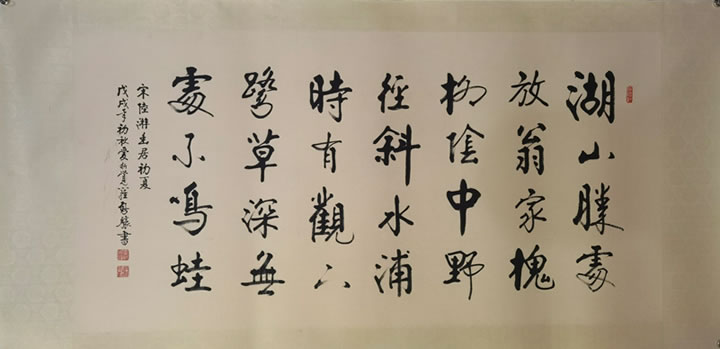 湖山勝處
放翁家槐
柳陰中野
徑斜水滿
時有觀下
鷺草深無
處不鳴蛙
宋陸游幽居初夏
戊戌年初秋書